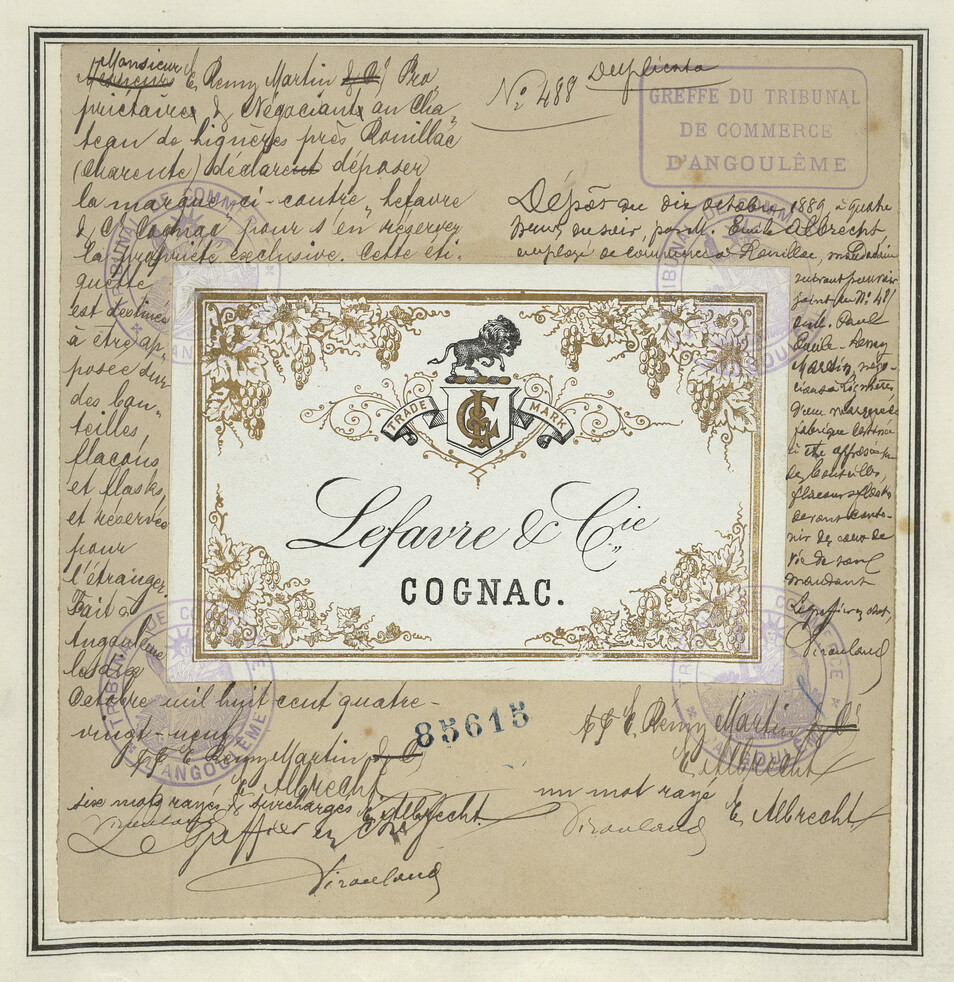 Monsieur
Messieurs E. Remy Martin & Cie Pro
priétaires & Négociants au Cha„
teau de Lignères près Rouillac
(Charente) déclarent déposer
la marque ci-contre „Lefavre
& Cie Cognac" pour s'en réserver
la propriété exclusive. Cette éti-
quette
est destinée
à être ap-
posée sur
des bou„
teilles,
flacons
et flasks,
et réservée
pour
l'étranger.
Fait à
Angoulême
le dix
Octobre mil huit cent quatre-
vingt-neuf
pp E. Remy Martin & Cie
E. Albrecht
six mots rayés & surchargés E. Albrecht
Le Greffier en Chef
Nº 488 Duplicata
GREFFE DU TRIBUNAL
DE COMMERCE
D'ANGOULÊME
Dépôt du dix octobre 1889 à quatre
heures du soir, par M. Emile Albrecht
employé de commerce à Rouillac, mandataire
suivant pouvoir
joint au Nº 481
de M. Paul
Emile-Remy
Martin, négo-
ciant à Lignères
d'une marque de
fabrique destinée
à être apposée sur
des bouteilles,
flacons & flasks
devant conte-
nir des eaux de
vie de son
mandant
Le greffier en chef,
TRADE MARK
Lefavre & Cie
COGNAC.
85615
pp E. Remy Martin & Cie
E. Albrecht
un mot rayé E. Albrecht
TRIBUNAL DE COMMERCE
D'ANGOULÊME
TRIBUNAL DE COMMERCE
D'ANGOULÊME
TRIBUNAL DE COMMERCE
D'ANGOULÊME
TRIBUNAL DE COMMERCE
D'ANGOULÊME